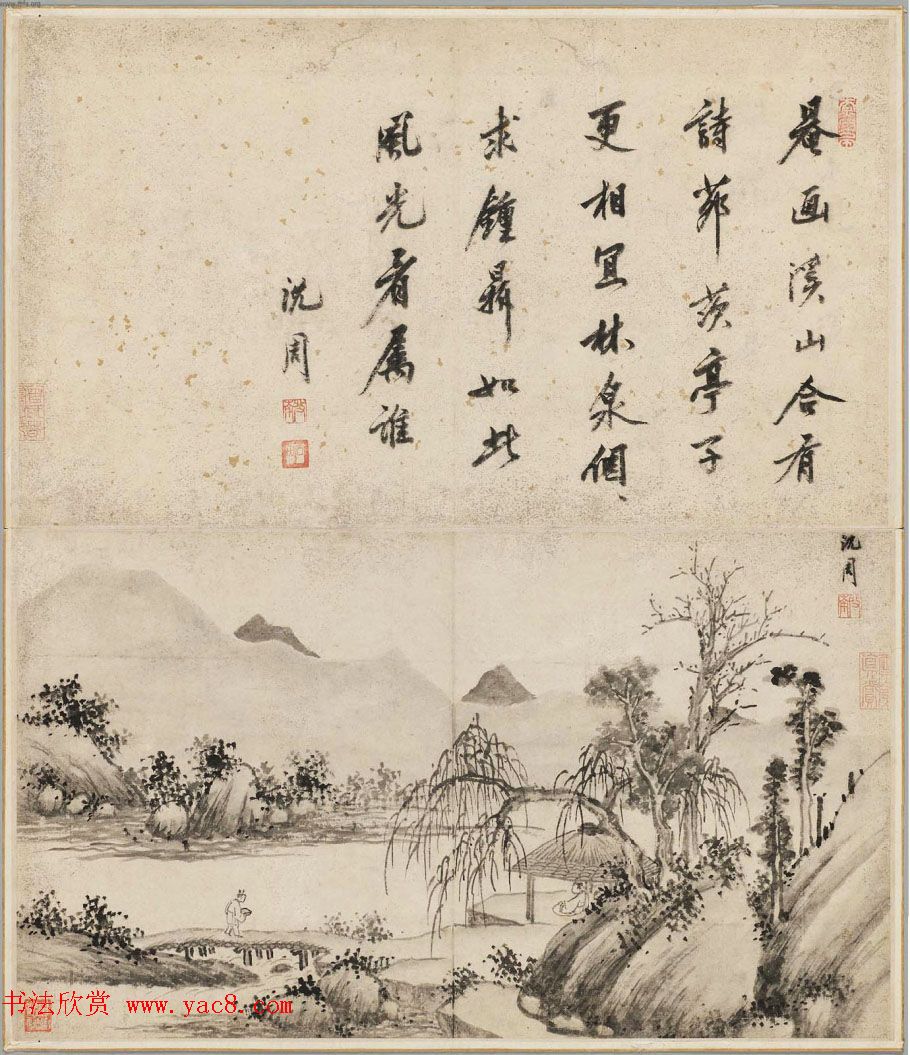 罨画溪山合有
詩茆茨亭子
更相宜林泉個、
求鍾鼎如此
風光看屬誰
沈周
沈周
书法欣赏 www.yac8.com